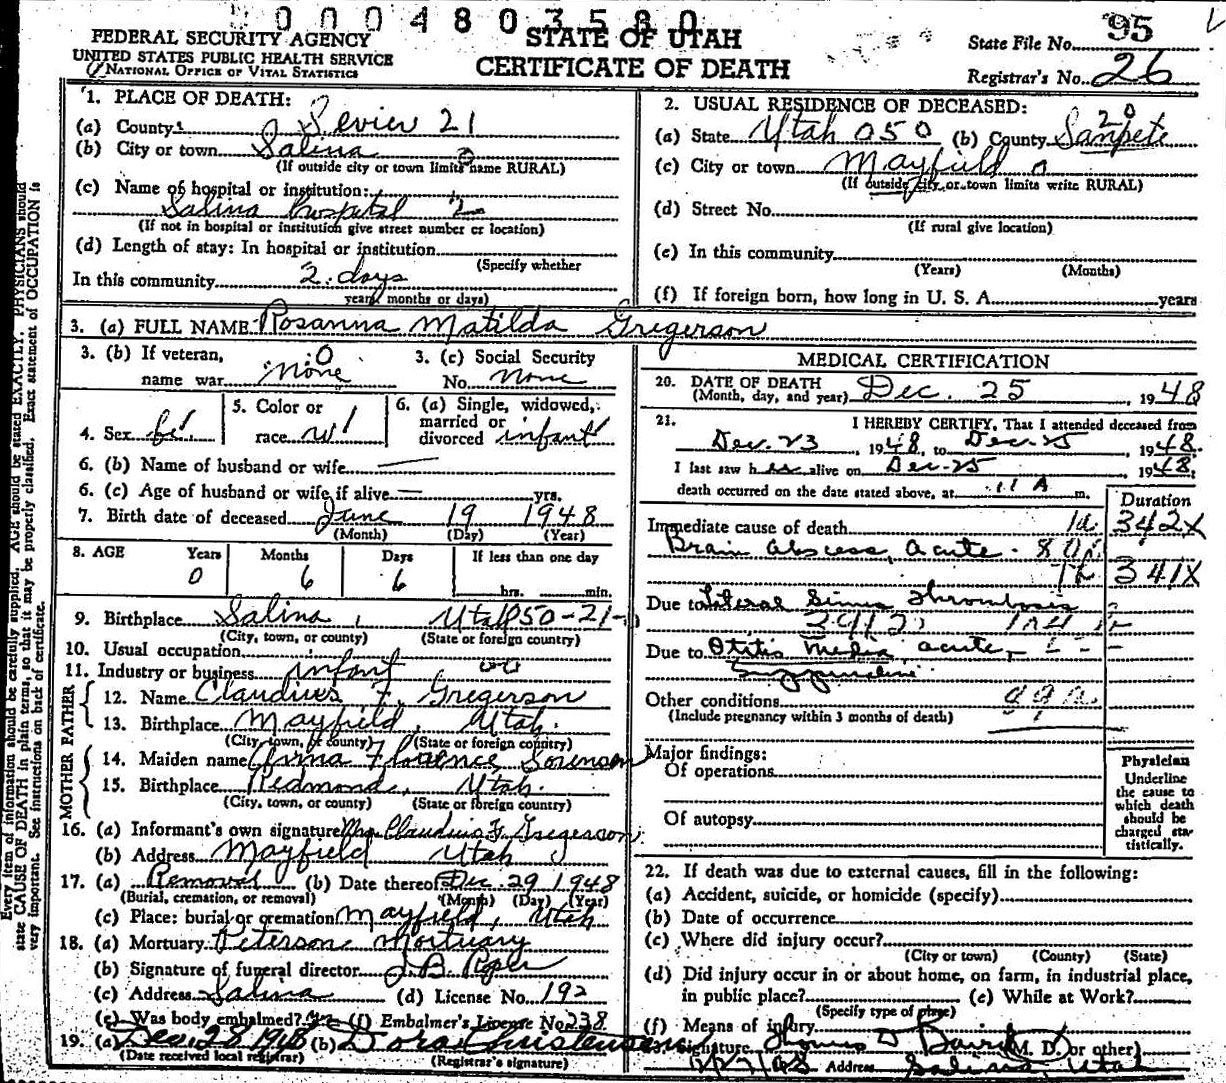 0004803580
FEDERAL SECURITY AGENCY
UNITED STATES PUBLIC HEALTH SERVICE
NATIONAL OFFICE OF VITAL STATISTICS
STATE OF UTAH
CERTIFICATE OF DEATH
State File No. 95
Registrar's No. 26
1. PLACE OF DEATH:
(a) County Sevier 21
(b) City or town Salina 0
(If outside city or town limits name RURAL)
(c) Name of hospital or institution:
Salina hospital 2
(If not in hospital or institution give street number or location)
(d) Length of stay: In hospital or institution
(Specify whether
In this community 2 days
years, months or days)
2. USUAL RESIDENCE OF DECEASED:
20
(a) State Utah 050 (b) County Sanpete
(c) City or town Mayfield 0
(If outside city or town limits write RURAL)
(d) Street No.
(If rural give location)
(e) In this community
(Years) (Months)
(f) If foreign born, how long in U. S. A. years
3. (a) FULL NAME Rosanna Matilda Gregerson
3. (b) If veteran, 0
name war none
3. (c) Social Security
No. none
4. Sex fe.
5. Color or
race w
6. (a) Single, widowed,
married or
divorced infant
6. (b) Name of husband or wife —
6. (c) Age of husband or wife, if alive — yrs.
7. Birth date of deceased June 19 1948
(Month) (Day) (Year)
8. AGE Years Months Days If less than one day
0 6 6 hrs. min.
9. Birthplace Salina, Utah 050-21-
(City, town, or county) (State or foreign country)
10. Usual occupation
11. Industry or business infant
FATHER
12. Name Claudius F. Gregerson
13. Birthplace Mayfield, Utah.
(City, town, or county) (State or foreign country)
MOTHER
14. Maiden name Anna Florence Sorenson
15. Birthplace Redmond, Utah.
(City, town, or county) (State or foreign country)
16. (a) Informant's own signature Mrs. Claudius F. Gregerson
(b) Address Mayfield Utah
17. (a) Removal (b) Date thereof Dec. 29 1948
(Burial, cremation, or removal) (Month) (Day) (Year)
(c) Place: burial or cremation Mayfield, Utah
18. (a) Mortuary Peterson Mortuary
(b) Signature of funeral director J. B. Roper
(c) Address Salina (d) License No. 192
(e) Was body embalmed? (f) Embalmer's License No. 238
19. (a) Dec. 28 1948 (b) Dora Christensen
(Date received local registrar) (Registrar's signature)
MEDICAL CERTIFICATION
20. DATE OF DEATH
(Month, day, and year) Dec. 25, 1948
21. I HEREBY CERTIFY, That I attended deceased from
Dec. 23, 1948, to Dec. 25, 1948.
I last saw h alive on Dec. 25 1948.
death occurred on the date stated above, at 11 A m.
Duration
Immediate cause of death 342X
Brain abscess, acute.
341X
Due to Lateral Sinus Thrombosis
Due to Otitis Media, acute,
Other conditions
(Include pregnancy within 3 months of death)
Major findings:
Of operations
Of autopsy
Physician
Underline
the cause to
which death
should be
charged sta-
tistically.
22. If death was due to external causes, fill in the following:
(a) Accident, suicide, or homicide (specify)
(b) Date of occurrence
(c) Where did injury occur?
(City or town) (County) (State)
(d) Did injury occur in or about home, on farm, in industrial place,
in public place? (e) While at Work?
(Specify type of place)
(f) Means of injury
Signature (M. D. or other)
12/27/48 Address Salina, Utah
Every item of information should be carefully supplied. AGE should be stated EXACTLY. PHYSICIANS should
state CAUSE OF DEATH in plain terms, so that it may be properly classified. Exact statement of OCCUPATION is
very important. See instructions on back of certificate.